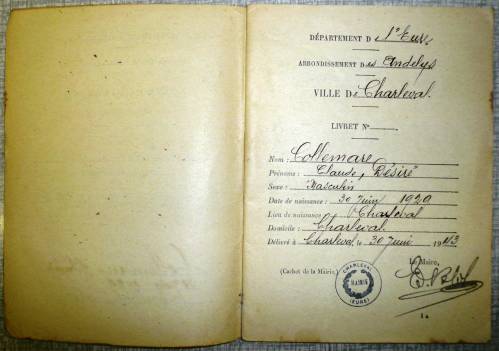 DÉPARTEMENT D e l'Eure
ARRONDISSEMENT D es Andelys
VILLE D e Charleval.
LIVRET N°
Nom : Collemare
Prénoms : Claude, Désiré
Sexe : Masculin
Date de naissance : 30 Juin 1929
Lieu de naissance : Charleval
Domicile : Charleval.
Délivré à Charleval, le 30 Juin 1943
Le Maire,
(Cachet de la Mairie.)
CHARLEVAL
MAIRIE
(EURE)